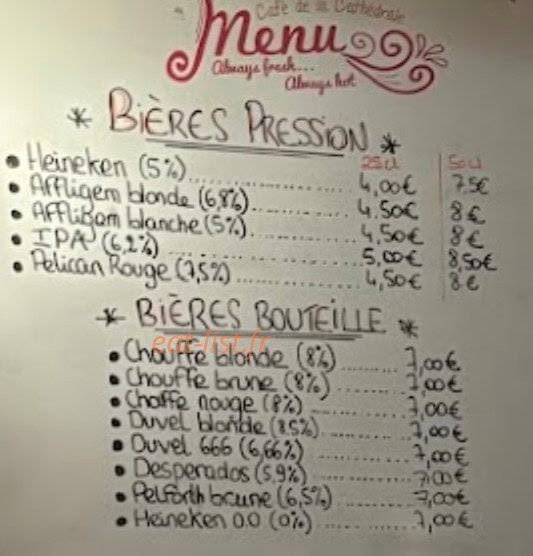 Café de la Cathédrale
Menu
Always fresh...
Always hot
* BIÈRES PRESSION *
25cl 50cl
• Heineken (5%) ........ 4,00€ 7,5€
• Affligem blonde (6,8%) ........ 4.50€ 8€
• AffliBam blanche (5%) ........ 4,50€ 8€
• IPA (6,2%) ........ 5,00€ 8,50€
• Pelican Rouge (7,5%) ........ 4,50€ 8€
* BIÈRES BOUTEILLE *
eat-list.fr
• Chouffe blonde (8%) ........ 7,00€
• Chouffe brune (8%) ........ 7,00€
• Chouffe rouge (8%) ........ 7,00€
• Duvel blonde (8.5%) ........ 7,00€
• Duvel 666 (6,66%) ........ 7,00€
• Desperados (5.9%) ........ 7,00€
• Pelforth brune (6,5%) ........ 7,00€
• Heineken 0.0 (0%) ........ 7,00€